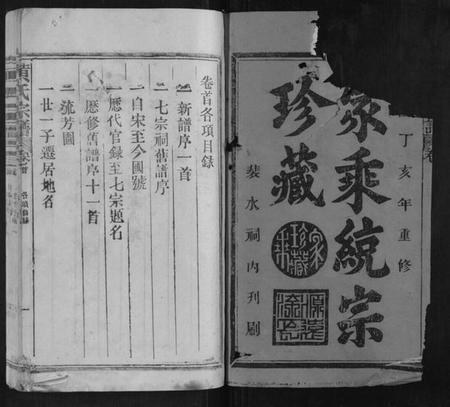 丁亥年重修
家乘統宗
珍藏
裴水祠內刊刷
卷首各項目錄
一新譜序一首
一七宗祠舊譜序
一自宋至今國號
一歷代官録至七宗題名
一歷修舊譜序十一首
一流芳圖
一世一子遷居地名
黃氏宗譜